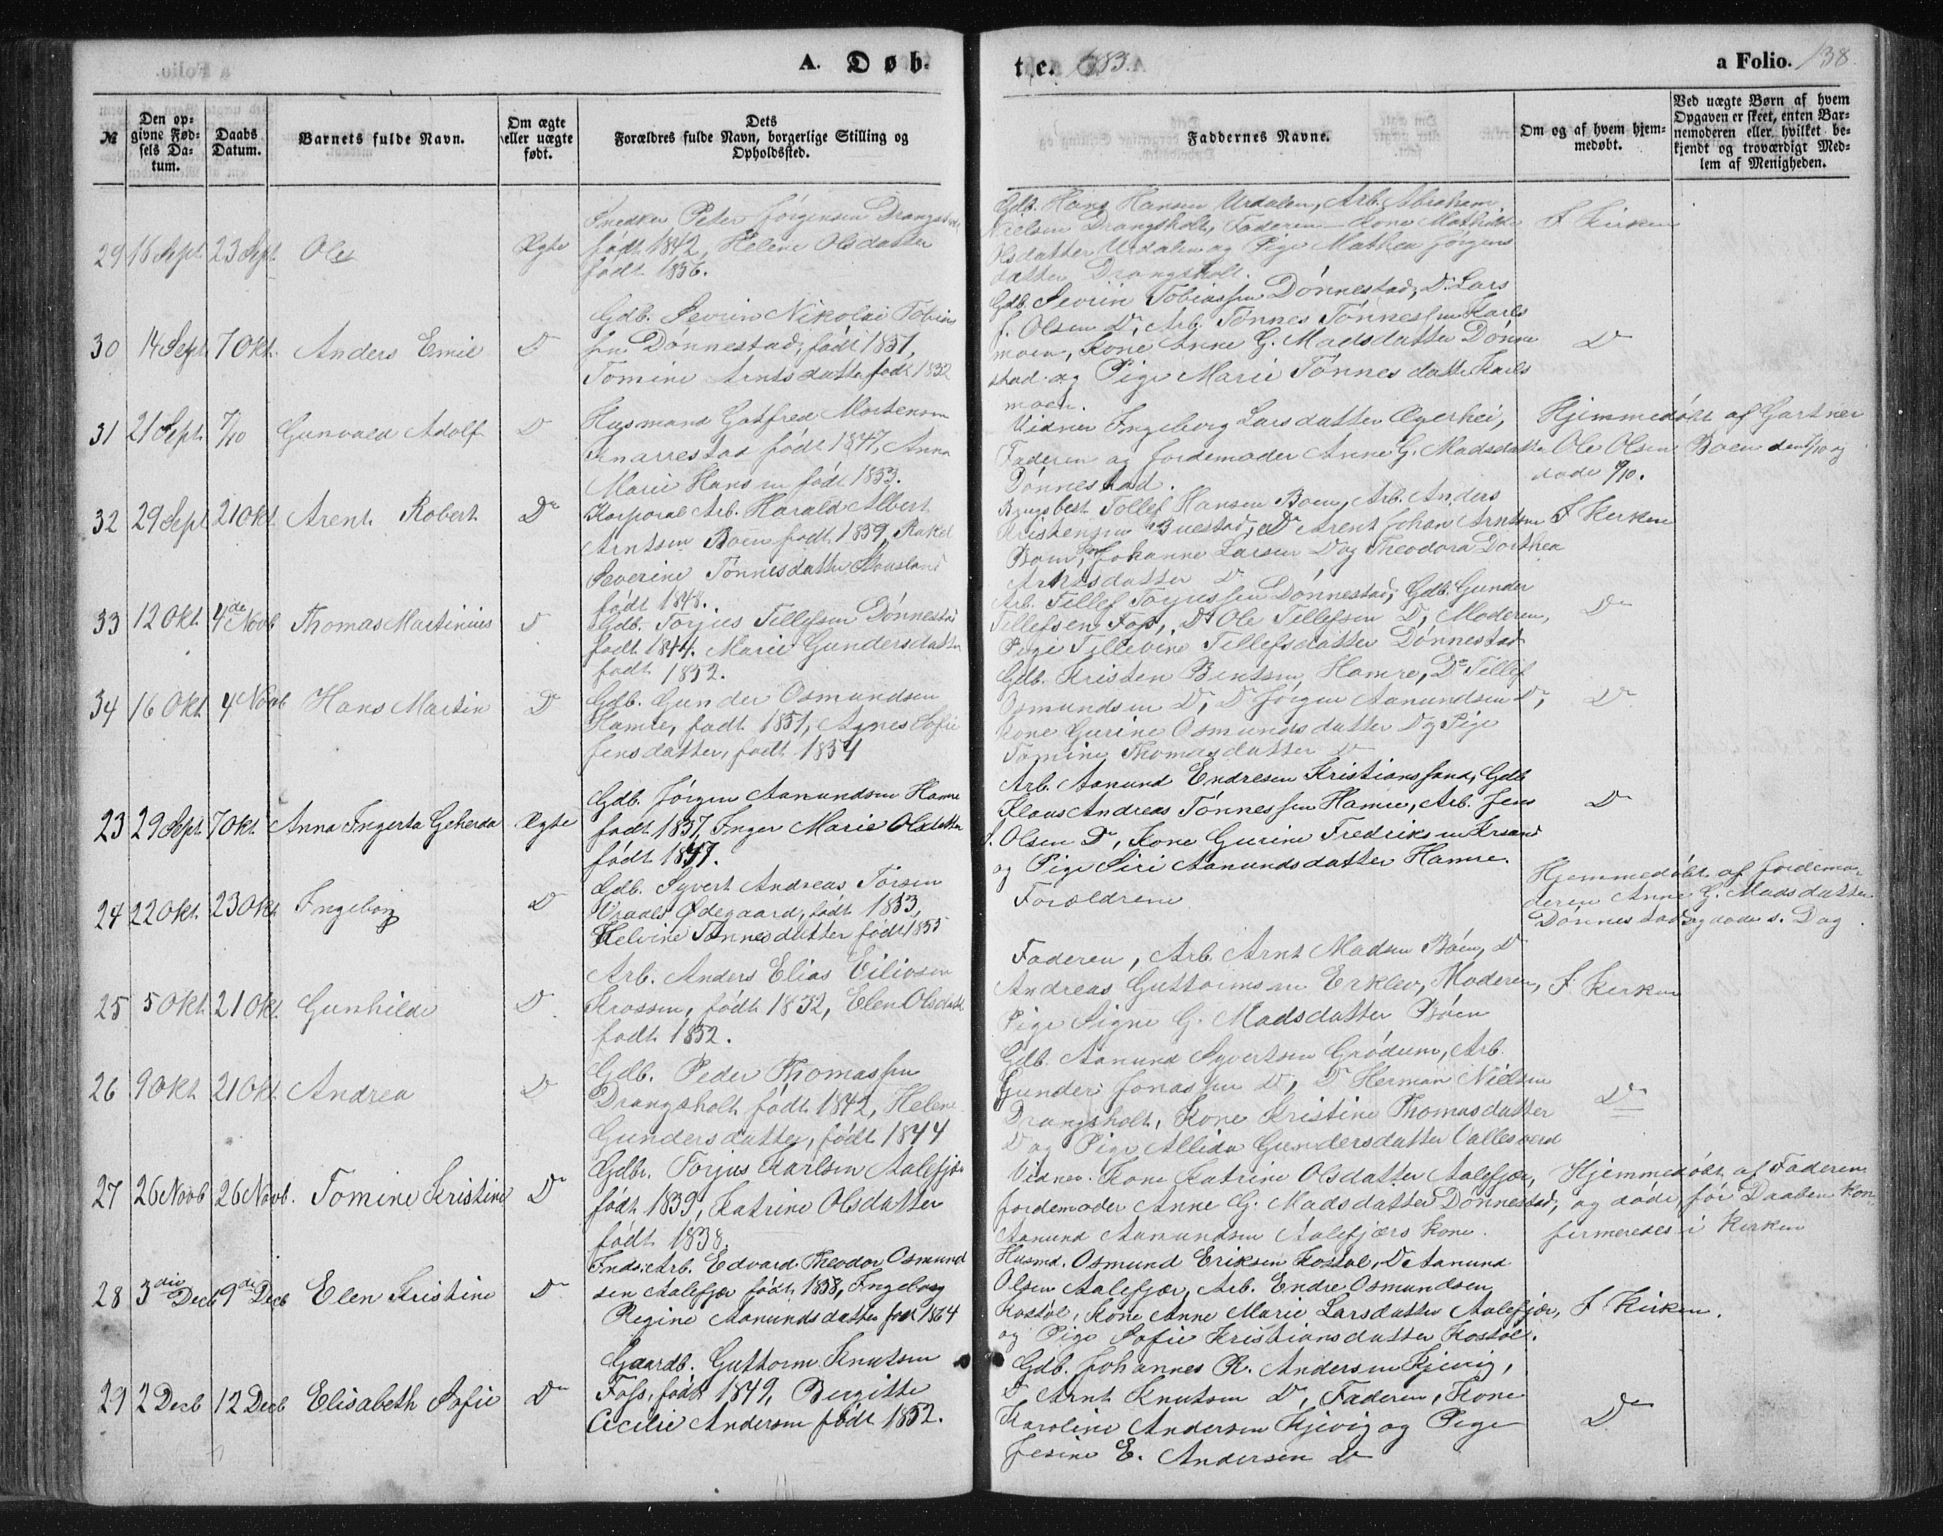 A. Døb-
te. 1883.
a Folio. 138.
№
Den opgivne Fødsels Datum.
Daabs Datum.
Barnets fulde Navn.
Om ægte eller uægte født.
Dets Forældres fulde Navn, borgerlige Stilling og Opholdssted.
Faddernes Navne.
Om og af hvem hjemmedøbt.
Ved uægte Børn af hvem Opgaven er skeet, enten Barnemoderen eller hvilket bekjendt og troværdigt Medlem af Menigheden.
29 16 Sept 23 Sept Ole Ægte
Snedker Peter Jörgensen Drangsholt,
født 1842, Helene Olsdatter
født 1856.
Gdb. Hans Hansen Urdalen, Arb. Abraham
Nielsen Drangsholt, Faderen, Kone Mathilde
Olsdatter Urdalen og Pige Mathea Jörgens
datter Drangsholt.
I Kirken
30 14 Sept 7 Okt. Anders Emil Do
Gdb. Severin Nikolai Tobias
sen Dønnestad, født 1851,
Tomine Arntsdatter født 1852
Gdb. Severin Tobiassen Dønnestad, Do Lars
J. Olsen Do, Arb. Tønnes Tønnessen Karls
moen, Kone Anne G. Madsdatter Dønne
stad og Pige Marie Tønnesdatter Karls
moen.
Do
31 21 Sept. 7/10 Gunvald Adolf Do
Husmand Gotfred Mortensen
Knarrestad født 1847, Anna
Marie Hansen født 1853.
Vidner Ingeborg Larsdatter Ægerhei,
Faderen og Jordemoder Anne G. Madsdatter
Dønnestad.
Hjemmedøbt af Gartner
Ole Olsen Boen den
døde 9/10.
32 29 Sept 21 Okt. Arent Robert Do
Korporal Arb. Harald Albert
Arntsen Boen født 1859, Rakel
Severine Tønnesdatter
født 1848.
Tollef Hansen Boen, Arb. Anders
Kristensen Buestad, Do Arent Johan Arntsen
Boen, Johanne Larsen Do og Theodora Dorthea
Arntsdatter Do
I Kirken
33 12 Okt. 4de Novb Thomas Martinius Do
Gdb. Torjus Tellefsen Dønnestad
født 1844. Marie Gundersdatter
født 1852.
Arb. Tellef Torjussen Dønnestad, Gdb. Gunder
Tellefsen Foss, Do Ole Tellefsen Do, Moderen,
Pige Tellevine Tellefsdatter Dønnestad
Do
34 16 Okt 4 Novb Hans Martin Do
Gdb. Gunder Osmundsen
Hamre, født 1851, Agnes Sofie
Jensdatter, født 1854
Gdb. Kristen Bentsen Hamre, Do Tellef
Osmundsen Do, Do Jörgen Aanundsen Do,
Kone Gurine Osmundsdatter Do og Pige
Tomine Thomasdatter Do
Do
23 29 Sept. 7 Okt. Anna Ingerta Geherda Ægte
Gdb. Jörgen Aanundsen Hamre
født 1857, Inger Marie Olsdatter
født 1857.
Arb. Aanund Endresen Kristianssand, Gdb.
Klaus Andreas Tønnessen Hamre, Arb. Jens
J. Olsen Do, Kone Gurine Fredriksen Krsand
og Pige Siri Aanundsdatter Hamre.
Do
24 22 Okt. 23 Okt. Ingeborg Do
Gdb. Syvert Andreas Torsen
Vraals Ødegaard, født 1853,
Helvine Tønnesdatter født 1855
Forældrene
Hjemmedøbt af Jordemo-
deren Anne G. Madsdatter
Dønnestad og døde s. Dag.
25 5 Okt. 21 Okt. Gunhilde Do
Arb. Anders Elias Eilivsen
Krossen, født 1852, Elen Olsdatter
født 1852.
Faderen, Arb. Arnt Madsen Böen, Do
Andreas Guttormsen Erklev, Moderen,
Pige Signe G. Madsdatter Böen
I Kirken
26 9 Okt 21 Okt. Andrea Do
Gdb. Peder Thomassen
Drangsholt født 1842, Helene
Gundersdatter, født 1844
Gdb. Aanund Syvertsen Grödum, Arb.
Gunder Jonassen Do, Do Herman Nielsen
Drangsholt, Kone Kristine Thomasdatter
Do og Pige Allida Gundersdatter Vallesverd
Do
27 26 Novb 26 Novb. Tomine Kristine Do
Gdb. Torjus Karlsen Aalefjær
født 1839, Katrine Olsdatter
født 1838.
Vidner. Kone Katrine Olsdatter Aalefjær,
Jordemoder Anne G. Madsdatter Dønnestad,
Aanund Aanundsen Aalefjærs Kone.
Hjemmedøbt af Faderen
og døde, før Daaben kon-
firmeredes i Kirken
28 3die Decb 9de Decb Elen Kristine Do
Inds. Arb. Edvard Theodor Osmund
sen Aalefjær født 1858, Ingeborg
Regine Aanundsdatter født 1864
Husmd. Osmund Eriksen Kostøl, Do Aanund
Olsen Aalefjær, Arb. Endre Osmundsen
Kostøl, Kone Anne Marie Larsdatter Aalefjær,
og Pige Sofie Kristiansdatter Kostøl.
I Kirken.
29 2 Decb 12 Decb Elisabeth Sofie Do
Gaardb. Guttorm Knutsen
Foss, født 1849, Bergitte
Cecilie Andersen født 1852.
Gdb. Johannes R. Andersen Kjevig,
Do Arnt Knutsen Do, Faderen, Kone
Karoline Andersen Kjevig og Pige
Jesine E. Andersen Do
Do